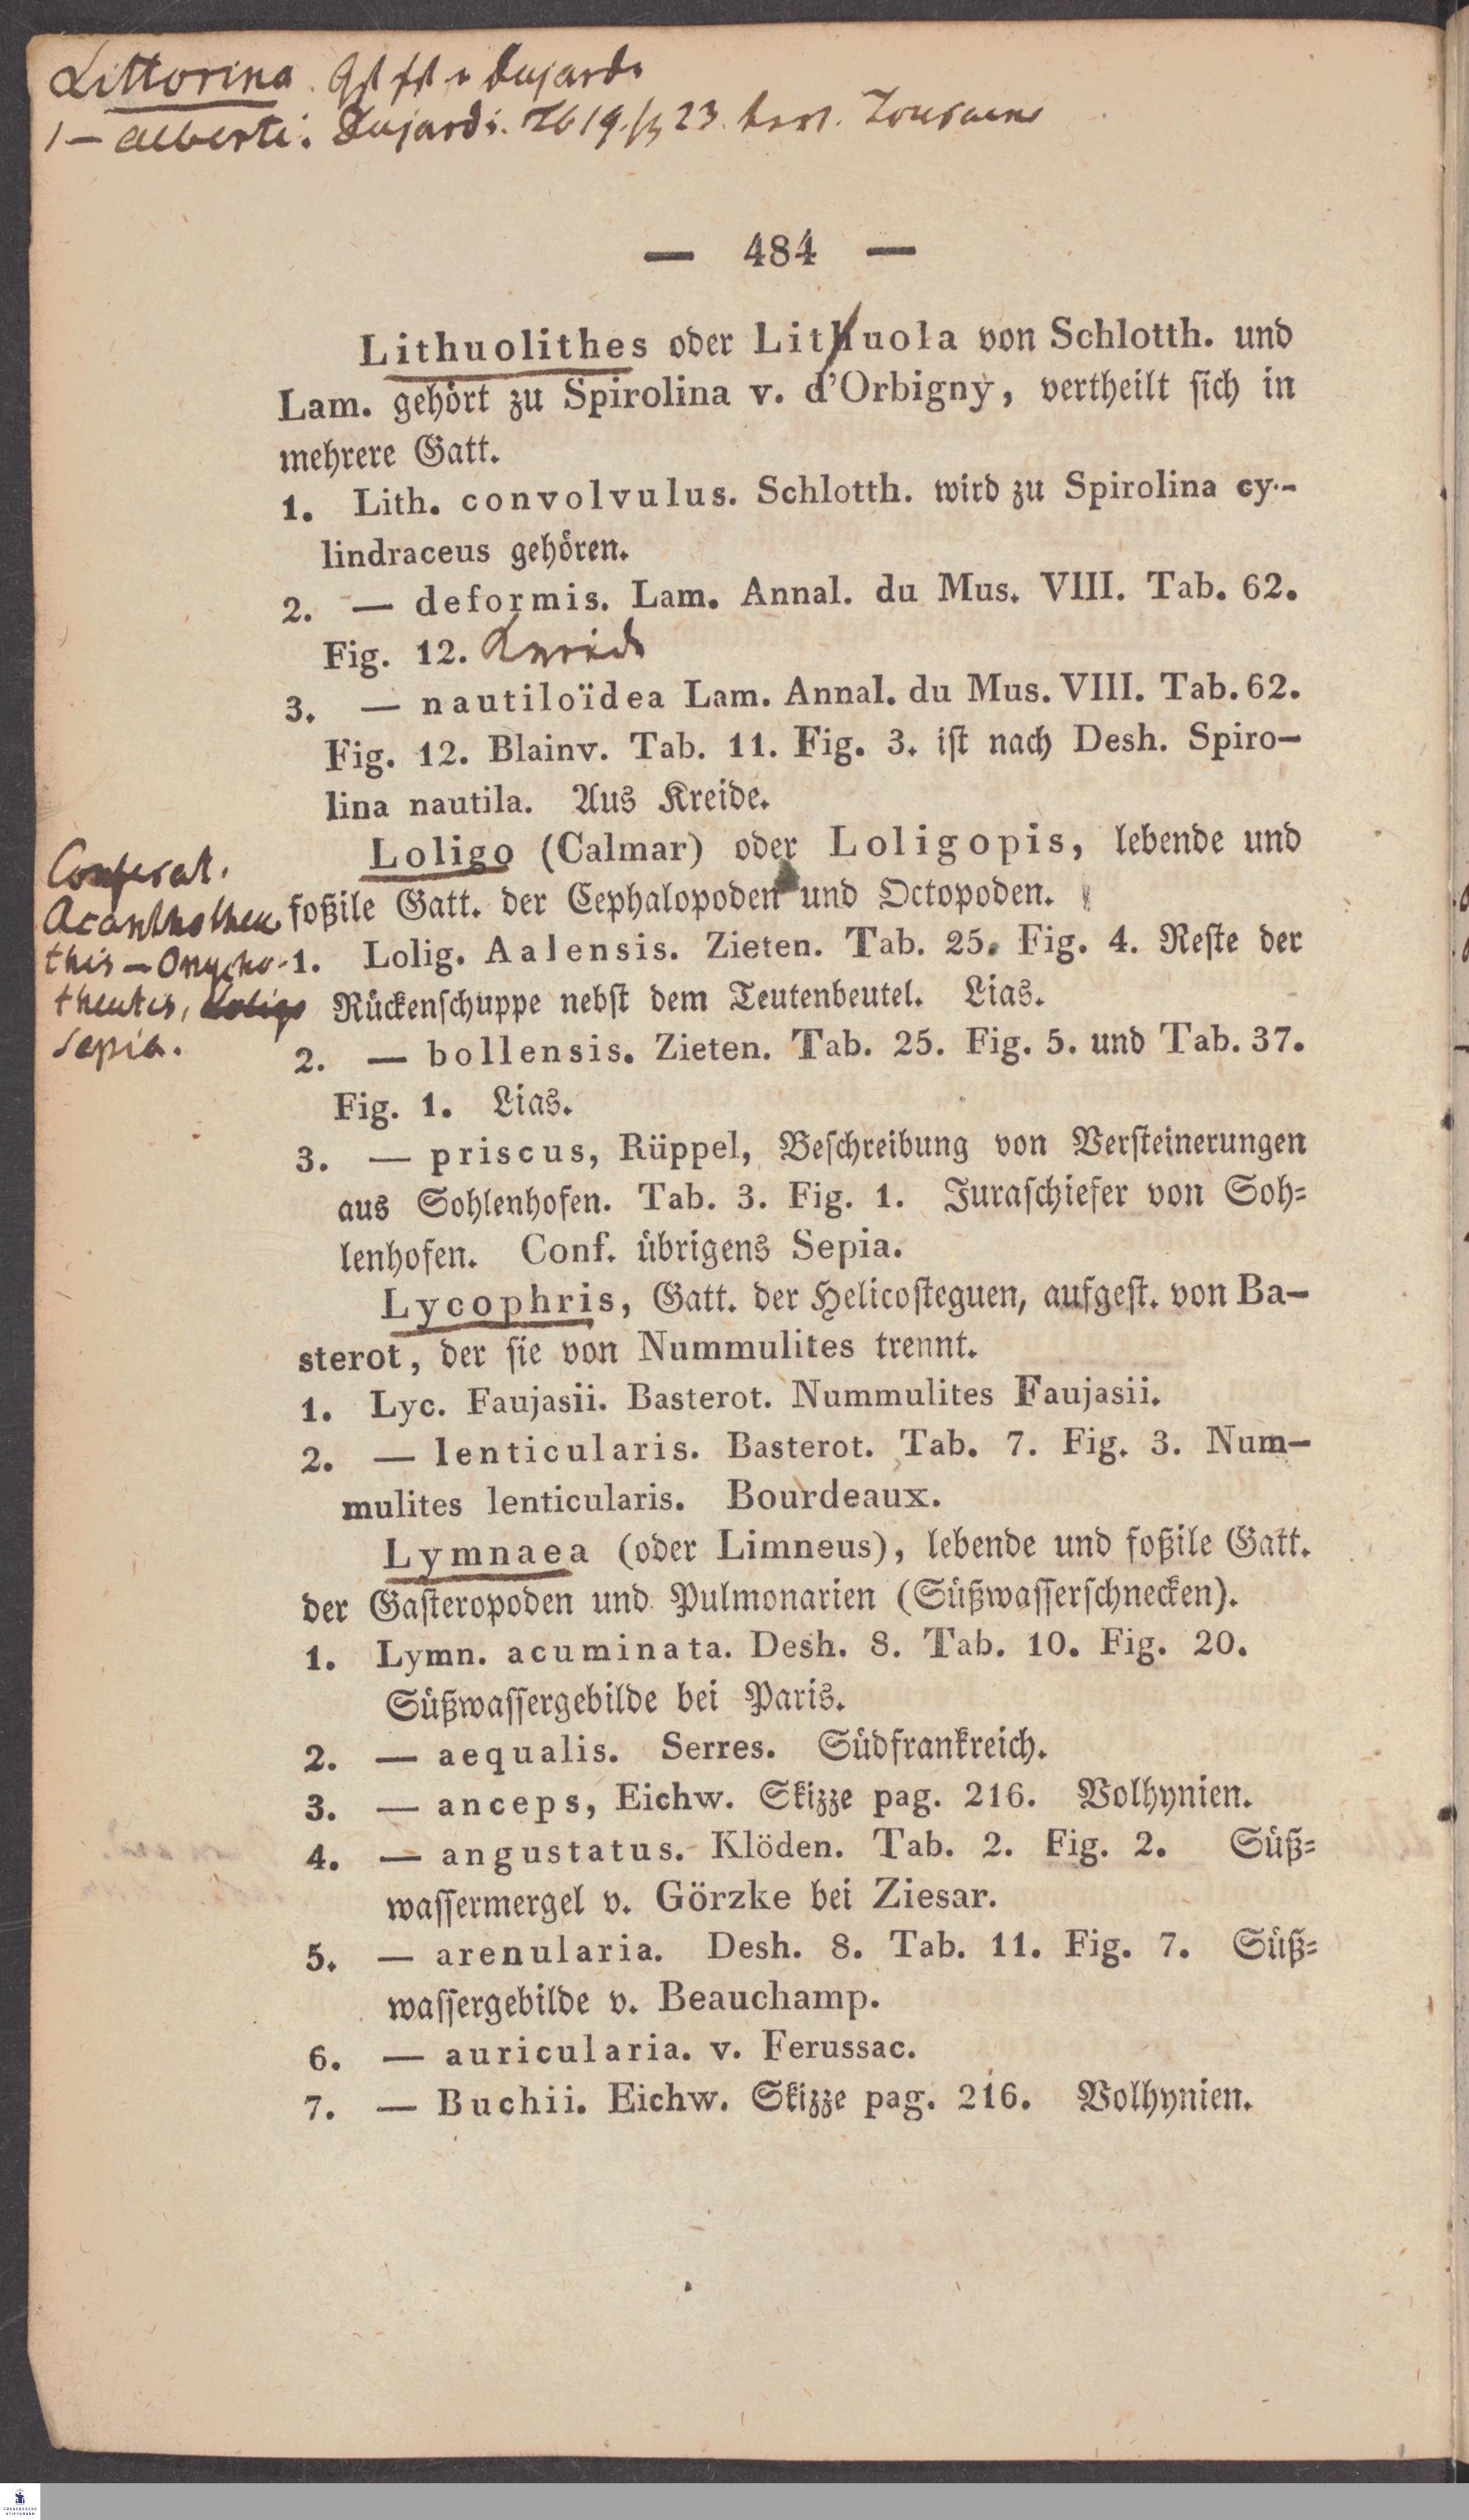 Littorina
1 — alberti. Dujardi. Tb 19. fig 23.
— 484 —
Lithuolithes oder Lithuola von Schlotth. und
Lam. gehört zu Spirolina v. d'Orbigny, vertheilt sich in
mehrere Gatt.
1. Lith. convolvulus. Schlotth. wird zu Spirolina cy-
lindraceus gehören.
2. — deformis. Lam. Annal. du Mus. VIII. Tab. 62.
Fig. 12. Kreide
3. — nautiloïdea Lam. Annal. du Mus. VIII. Tab. 62.
Fig. 12. Blainv. Tab. 11. Fig. 3. ist nach Desh. Spiro-
lina nautila. Aus Kreide.
Loligo (Calmar) oder Loligopis, lebende und
foßile Gatt. der Cephalopoden und Octopoden.
Conferat.
Acanthotheu
this — Onycho-
theutis, Loligo
Sepia.
1. Lolig. Aalensis. Zieten. Tab. 25. Fig. 4. Reste der
Rückenschuppe nebst dem Teutenbeutel. Lias.
2. — bollensis. Zieten. Tab. 25. Fig. 5. und Tab. 37.
Fig. 1. Lias.
3. — priscus, Rüppel, Beschreibung von Versteinerungen
aus Sohlenhofen. Tab. 3. Fig. 1. Juraschiefer von Soh-
lenhofen. Conf. übrigens Sepia.
Lycophris, Gatt. der Helicosteguen, aufgest. von Ba-
sterot, der sie von Nummulites trennt.
1. Lyc. Faujasii. Basterot. Nummulites Faujasii.
2. — lenticularis. Basterot. Tab. 7. Fig. 3. Num-
mulites lenticularis. Bourdeaux.
Lymnaea (oder Limneus), lebende und foßile Gatt.
der Gasteropoden und Pulmonarien (Süßwasserschnecken).
1. Lymn. acuminata. Desh. 8. Tab. 10. Fig. 20.
Süßwassergebilde bei Paris.
2. — aequalis. Serres. Südfrankreich.
3. — anceps, Eichw. Skizze pag. 216. Volhynien.
4. — angustatus. Klöden. Tab. 2. Fig. 2. Süß-
wassermergel v. Görzke bei Ziesar.
5. — arenularia. Desh. 8. Tab. 11. Fig. 7. Süß-
wassergebilde v. Beauchamp.
6. — auricularia. v. Ferussac.
7. — Buchii. Eichw. Skizze pag. 216. Volhynien.
FRANCKESCHE
STIFTUNGEN